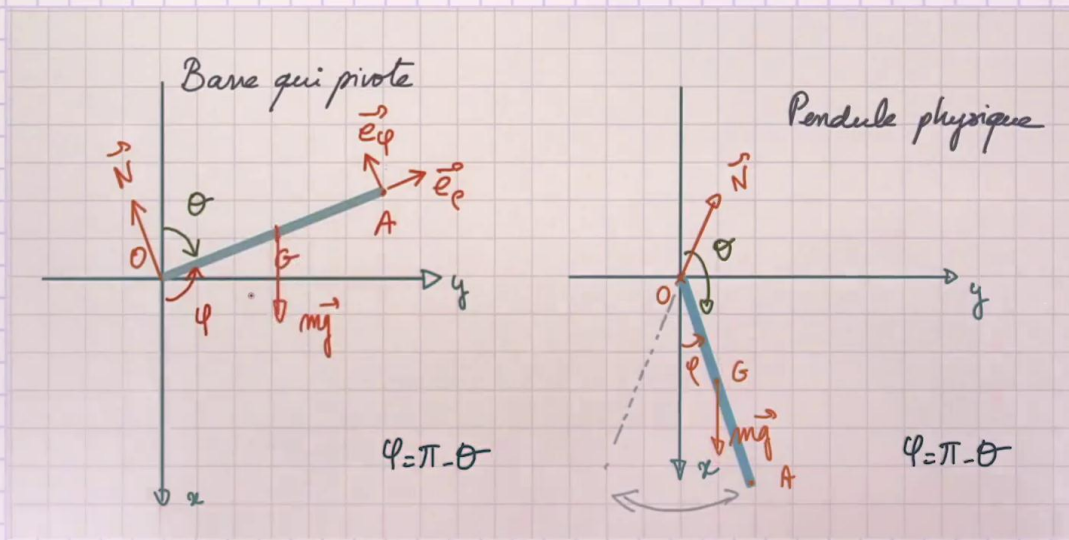 Barre qui pivote
e⃗φ
N⃗
e⃗ρ
θ
A
O
G
y
φ
mg⃗
φ=π-θ
x
Pendule physique
N⃗
θ
O
y
φ
G
mg⃗
x
φ=π-θ
A